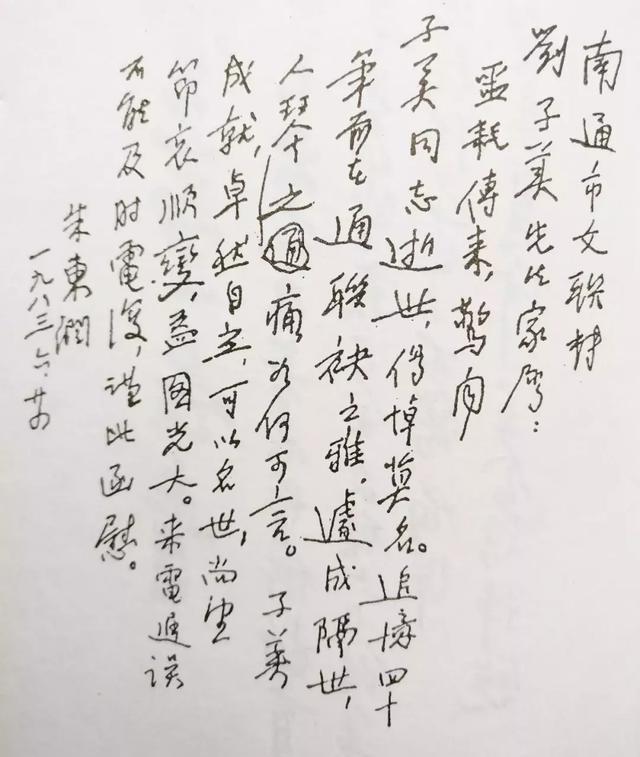 南通市文联转
劉子美先生家屬：
噩耗傳来，驚聞
子美同志逝世，傷悼莫名。追憶四十
年前在通聯袂之雅，遽成隔世，
人琴之通痛如何可言。子美
成就，卓然自立，可以名世，尚望
節哀順變，益圖光大。来電遲誤
不能及时電復，謹此函慰。
朱東潤
一九八三、六、廿